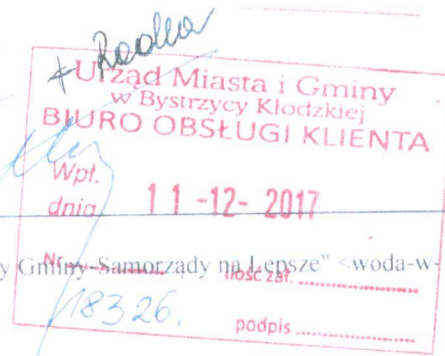 Urząd Miasta i Gminy
w Bystrzycy Kłodzkiej
BIURO OBSŁUGI KLIENTA
Wpł.
dnia 11-12-2017
y Gminy-Samorządy na Lepsze" <woda-w-
Nr ilość zał.
18326.
podpis